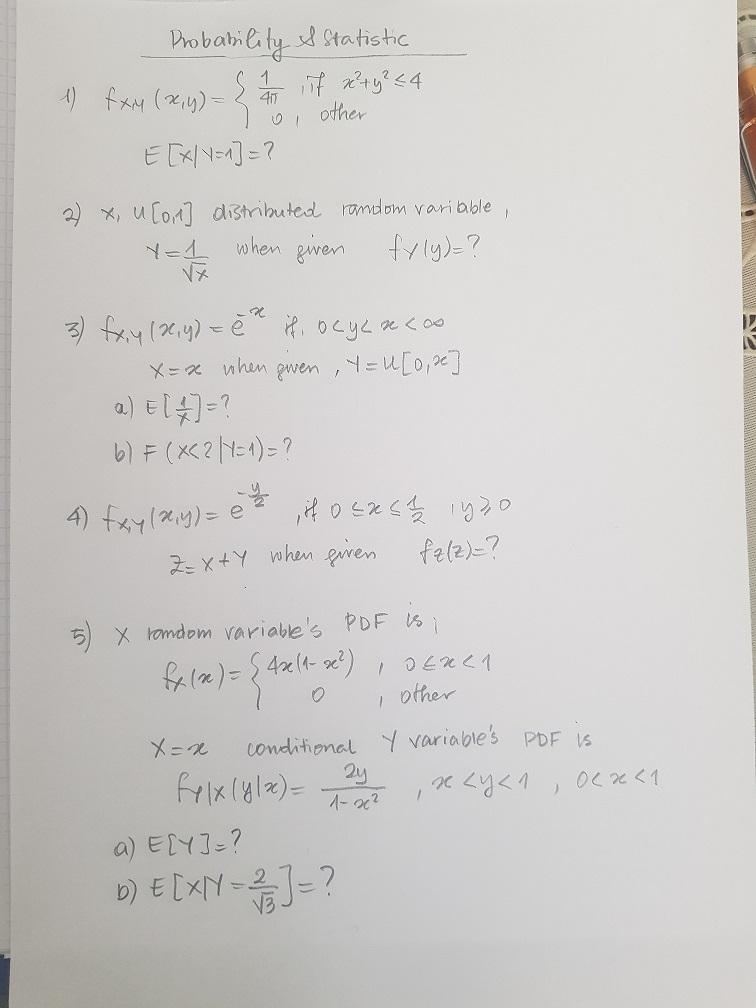 Probability & Statistic
1) fX,Y (x,y) = { 1/4π , if x²+y² ≤ 4
0, other
E[X|Y=1] = ?
2) X, U[0,1] distributed random variable,
Y = 1/√X when given fY(y) = ?
3) fX,Y (x,y) = e^-x if, 0<y<x<∞
X=x when given, Y=U[0,x]
a) E[1/X] = ?
b) F(X<2|Y=1) = ?
4) fX,Y(x,y) = e^-y/2 , if 0 ≤ x ≤ 1/2 , y ≥ 0
Z = X+Y when given fZ(z) = ?
5) X random variable's PDF is;
fX(x) = { 4x(1-x²) , 0 ≤ x < 1
0 , other
X=x conditional Y variable's PDF is
fY|X(y|x) = 2y/1-x² , x<y<1 , 0<x<1
a) E[Y] = ?
b) E[X|Y = 2/√3] = ?